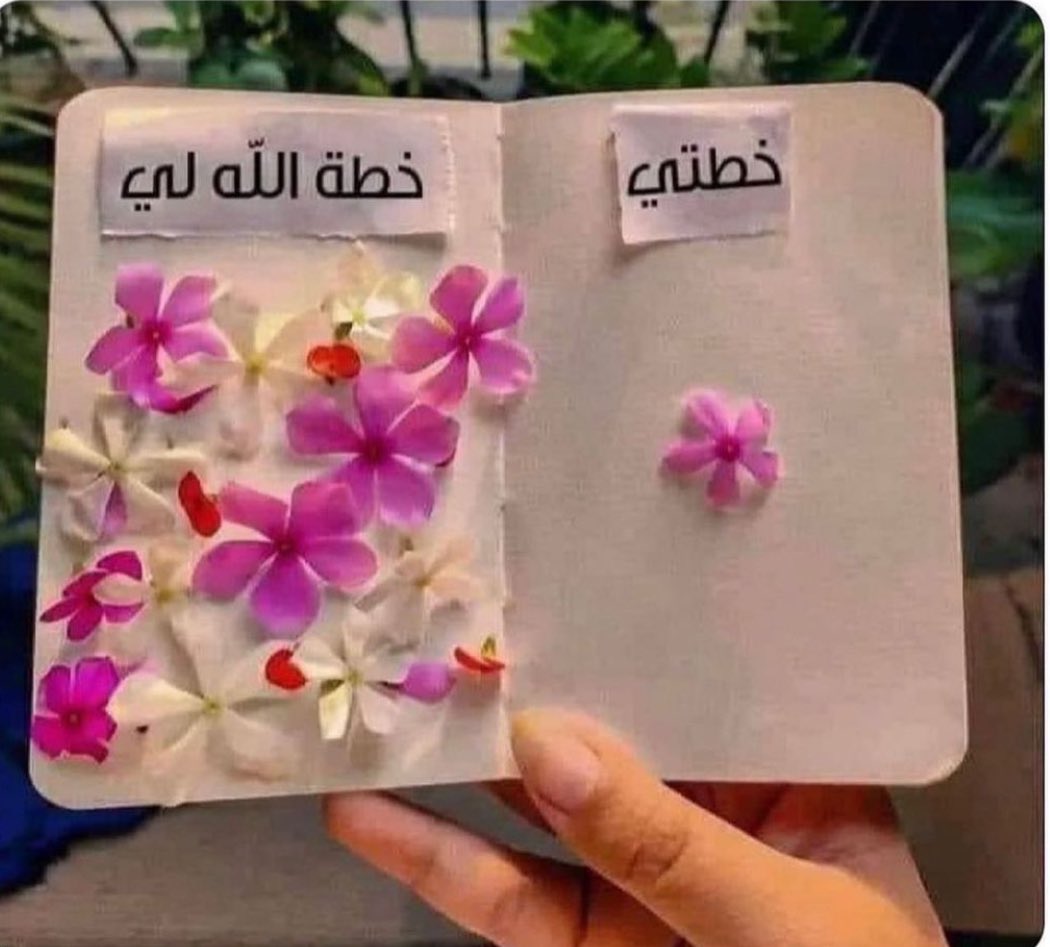 خطتي
خطة اللّه لي